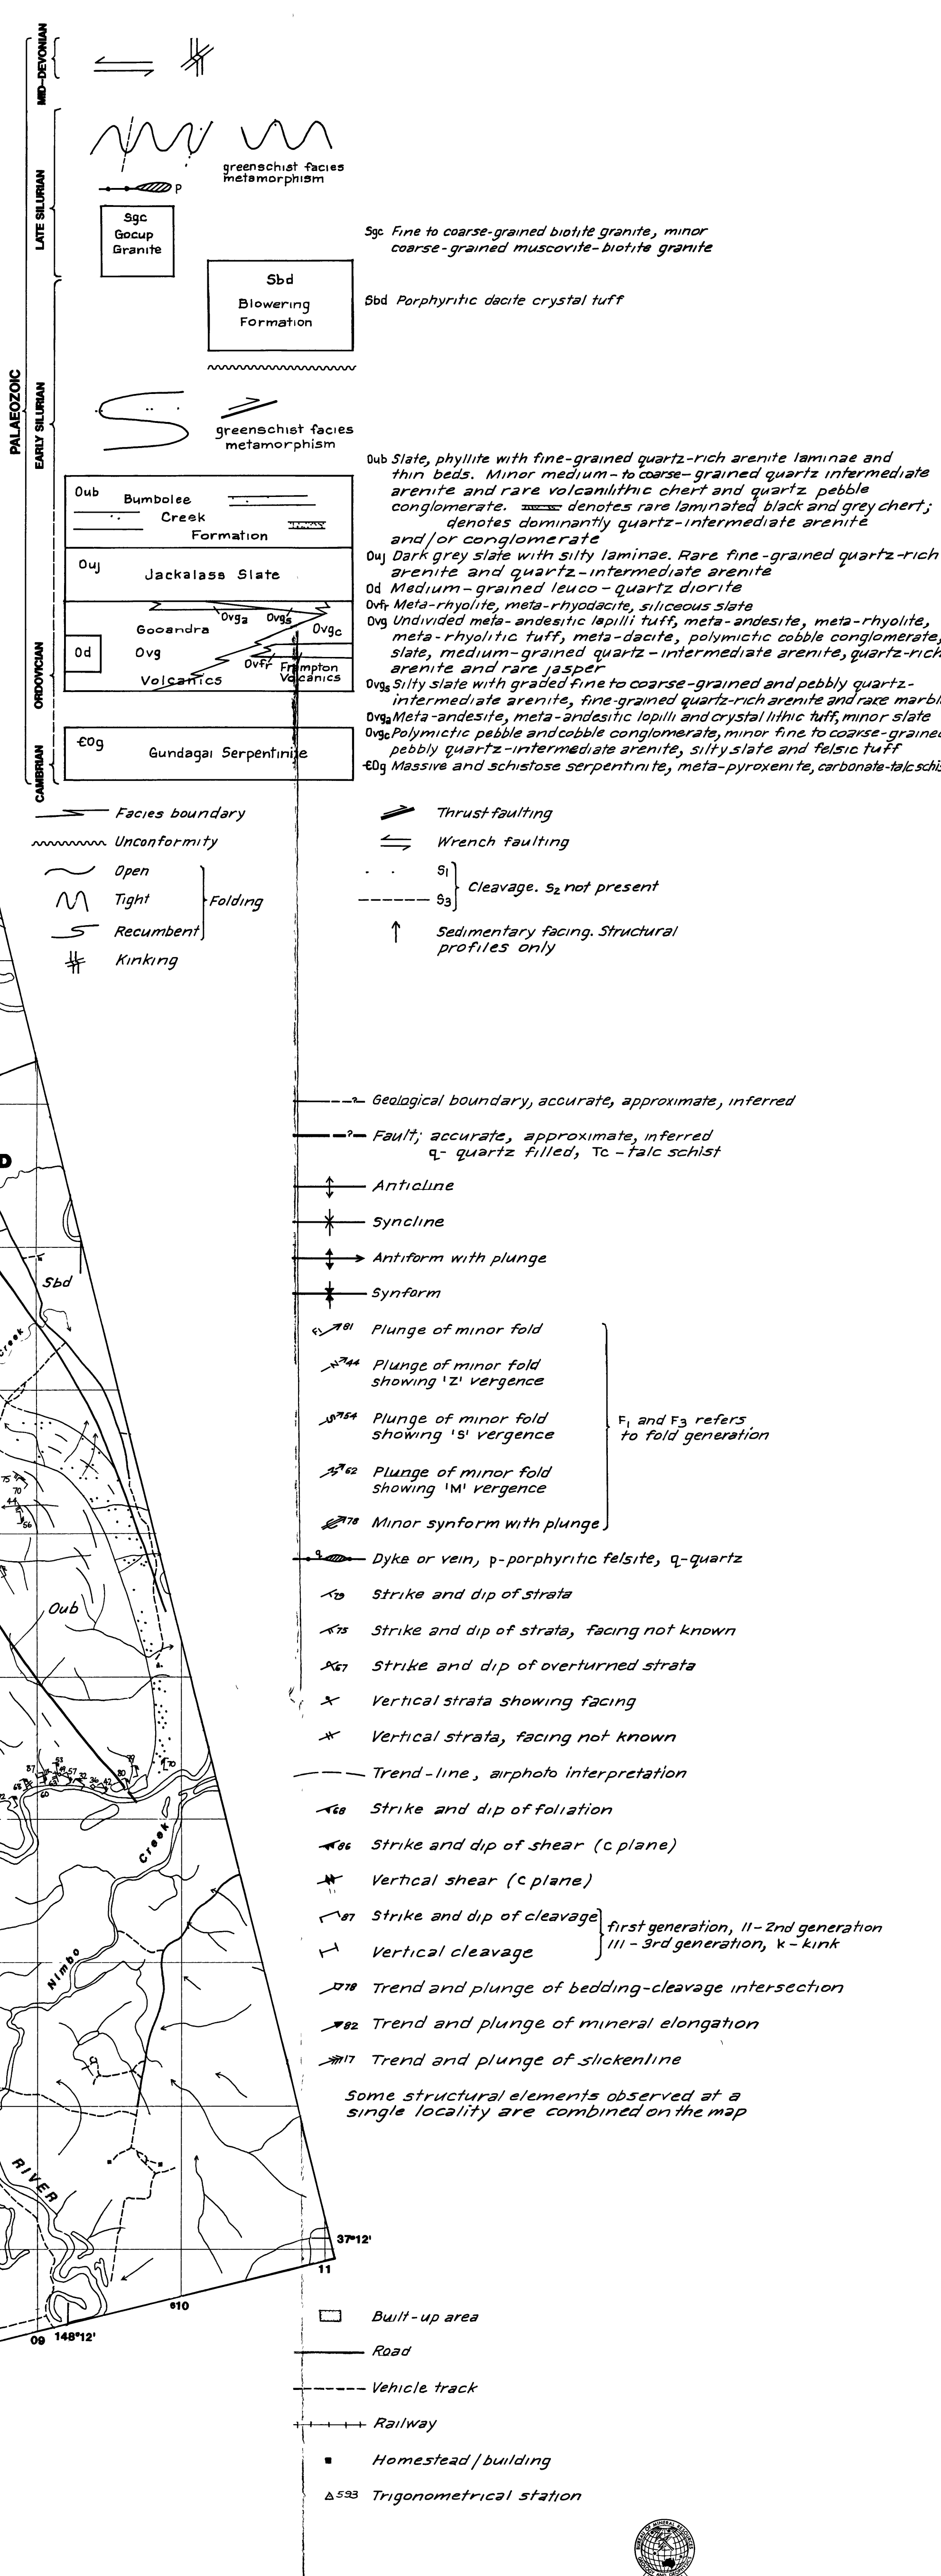 MID-DEVONIAN
LATE SILURIAN
EARLY SILURIAN
PALAEOZOIC
ORDOVICIAN
CAMBRIAN
greenschist facies
metamorphism
p
Sgc
Gocup
Granite
Sgc Fine to coarse-grained biotite granite, minor
coarse-grained muscovite-biotite granite
Sbd
Blowering
Formation
Sbd Porphyritic dacite crystal tuff
greenschist facies
metamorphism
Oub
Bumbolee
Creek
Formation
Ouj
Jackalass Slate
Ovga Ovgs
Gooandra
Ovgc
Od
Ovg
Ovfr Frampton
Volcanics
Volcanics
ЄOg
Gundagai Serpentinite
Oub Slate, phyllite with fine-grained quartz-rich arenite laminae and
thin beds. Minor medium- to coarse-grained quartz intermediate
arenite and rare volcanilithic chert and quartz pebble
conglomerate. denotes rare laminated black and grey chert;
denotes dominantly quartz-intermediate arenite
and/or conglomerate
Ouj Dark grey slate with silty laminae. Rare fine-grained quartz-rich
arenite and quartz-intermediate arenite
Od Medium-grained leuco-quartz diorite
Ovfr Meta-rhyolite, meta-rhyodacite, siliceous slate
Ovg Undivided meta-andesitic lapilli tuff, meta-andesite, meta-rhyolite,
meta-rhyolitic tuff, meta-dacite, polymictic cobble conglomerate,
slate, medium-grained quartz-intermediate arenite, quartz-rich
arenite and rare jasper
Ovgs Silty slate with graded fine to coarse-grained and pebbly quartz-
intermediate arenite, fine-grained quartz-rich arenite and rare marbl
Ovga Meta-andesite, meta-andesitic lopilli and crystal lithic tuff, minor slate
Ovgc Polymictic pebble and cobble conglomerate, minor fine to coarse-graine
pebbly quartz-intermediate arenite, silty slate and felsic tuff
ЄOg Massive and schistose serpentinite, meta-pyroxenite, carbonate-talc schis
Facies boundary
Unconformity
Open
Tight
Recumbent
Folding
Kinking
Thrust faulting
Wrench faulting
S1
S3
Cleavage. S2 not present
Sedimentary facing. Structural
profiles only
? Geological boundary, accurate, approximate, inferred
? Fault; accurate, approximate, inferred
q- quartz filled, Tc - talc schist
Anticline
Syncline
Antiform with plunge
Synform
81 Plunge of minor fold
44 Plunge of minor fold
showing 'Z' vergence
54 Plunge of minor fold
showing 'S' vergence
62 Plunge of minor fold
showing 'M' vergence
78 Minor synform with plunge
F1 and F3 refers
to fold generation
q Dyke or vein, p-porphyritic felsite, q-quartz
Strike and dip of strata
75 Strike and dip of strata, facing not known
67 Strike and dip of overturned strata
Vertical strata showing facing
Vertical strata, facing not known
Trend-line, airphoto interpretation
68 Strike and dip of foliation
86 Strike and dip of shear (c plane)
Vertical shear (c plane)
87 Strike and dip of cleavage
Vertical cleavage
first generation, II-2nd generation
III-3rd generation, k-kink
78 Trend and plunge of bedding-cleavage intersection
82 Trend and plunge of mineral elongation
17 Trend and plunge of slickenline
Some structural elements observed at a
single locality are combined on the map
Built-up area
Road
Vehicle track
Railway
Homestead/building
593 Trigonometrical station
D
Sbd
Creek
75
70
44
56
Oub
Creek
Nimbo
RIVER
37°12'
11
610
09 148°12'